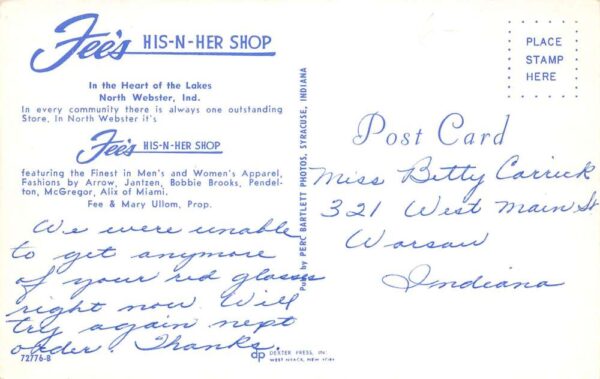 Fee's HIS-N-HER SHOP
In the Heart of the Lakes
North Webster, Ind.
In every community there is always one outstanding
Store. In North Webster it's
Fee's HIS-N-HER SHOP
featuring the Finest in Men's and Women's Apparel,
Fashions by Arrow, Jantzen, Bobbie Brooks, Pendel-
ton, McGregor, Alix of Miami.
Fee & Mary Ullom, Prop.
We were unable
to get anymore
of your red glasses
right now. Will
try again next
order. Thanks.
72776-B
dp DEXTER PRESS, IN
WEST NYACK, NEW YORK
Pub. by PERC BARTLETT PHOTOS, SYRACUSE, INDIANA
PLACE
STAMP
HERE
Post Card
Miss Betty Carrick
321 West Main St
Warsaw
Indiana